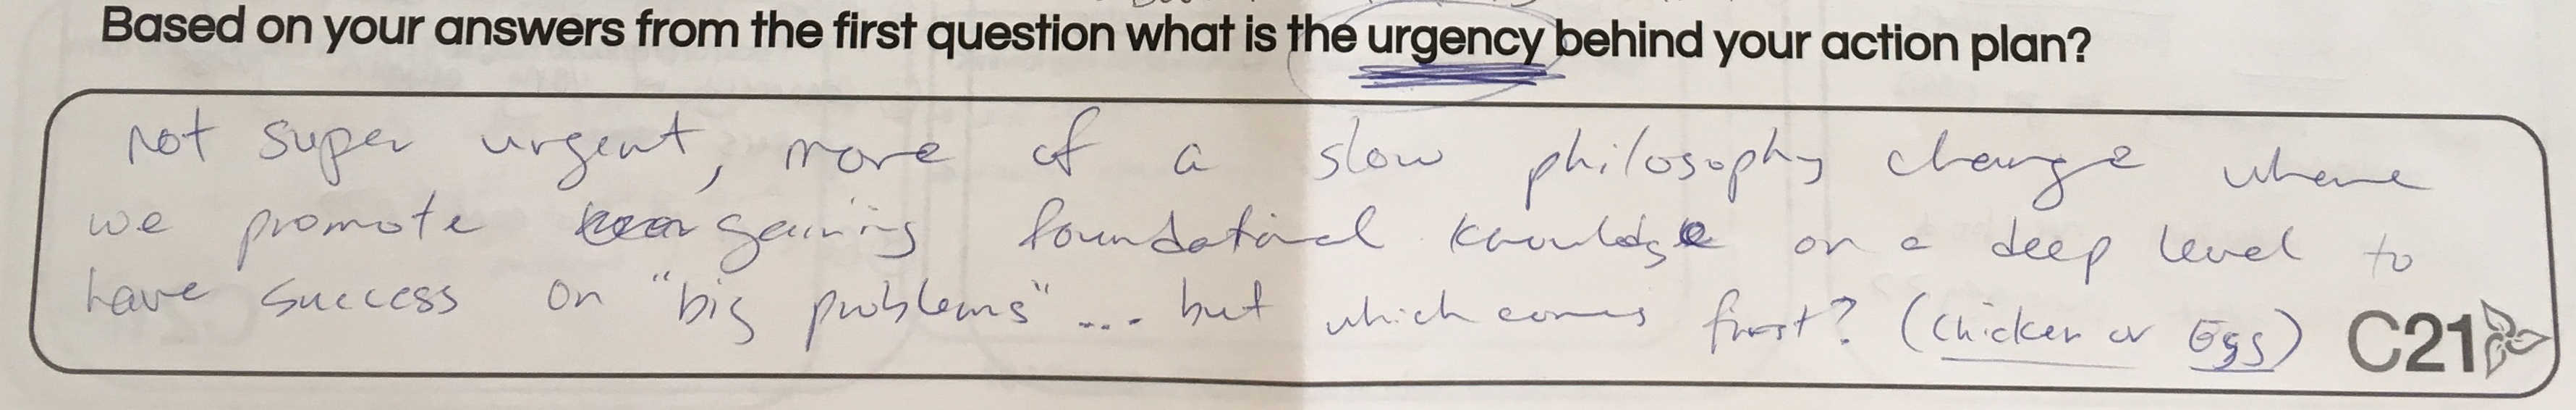 Based on your answers from the first question what is the urgency behind your action plan?
Not super urgent, more of a slow philosophy change where
we promote gaining foundational knowledge on a deep level to
have success on "big problems"... but which comes first? (Chicken or Egg)
C21